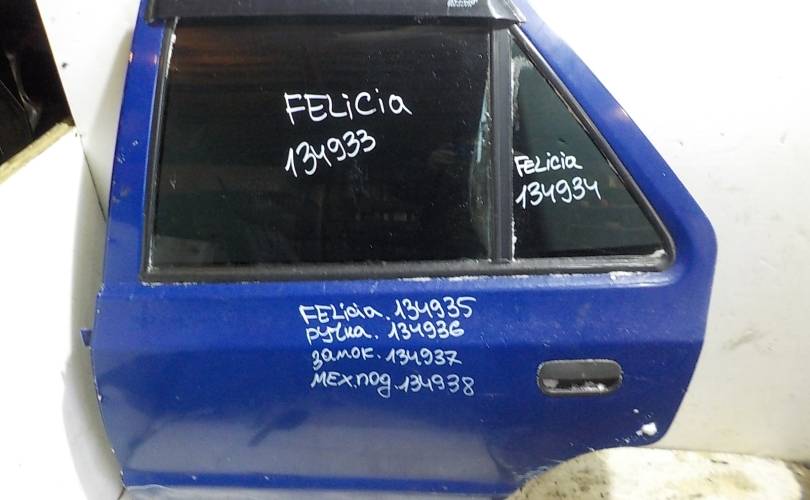 FELiCia
134933
FELicia
134934
FELicia. 134935
ручка. 134936
замок. 134937
мех.под. 134938